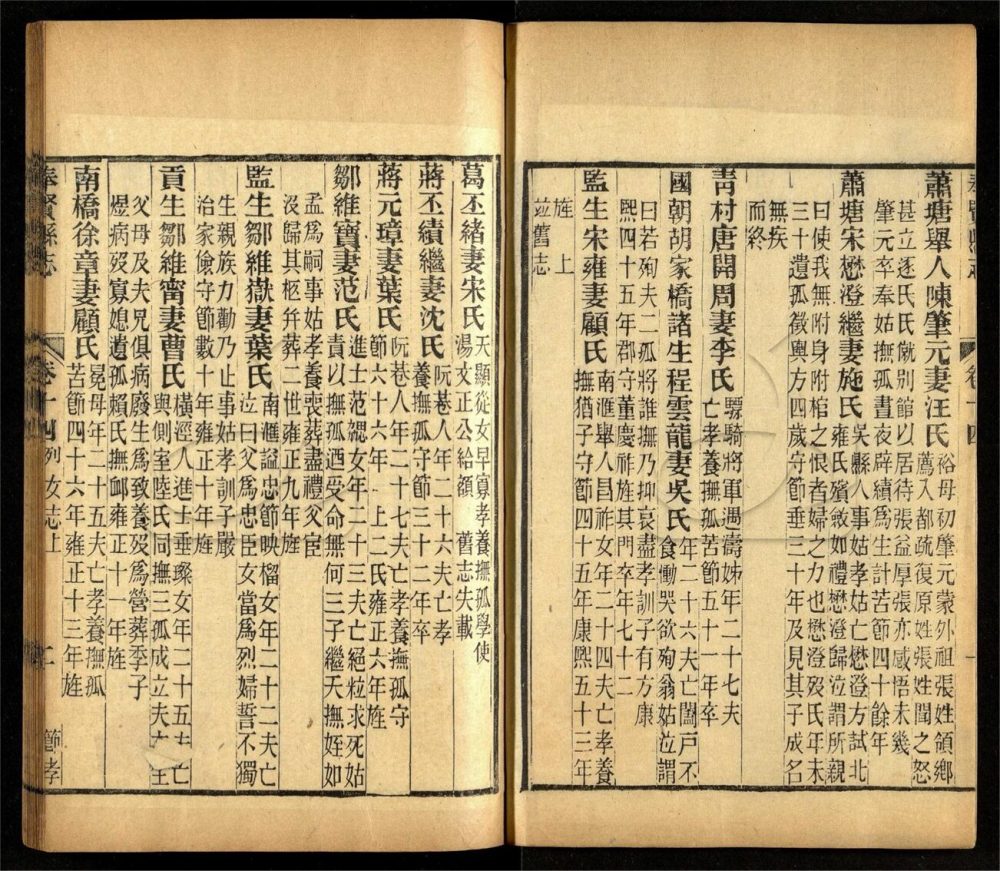 蕭塘舉人陳肇元妻汪氏
裕母初肇元蒙外祖張姓領鄉
薦入都疏復原姓張姓聞之怒
甚立逐氏僦別館以居待張益厚張亦感悟未幾
肇元卒奉姑撫孤晝夜辟績爲生計苦節四十餘年
蕭塘宋懋澄繼妻施氏
吳縣人事姑孝姑亡懋澄方試北
雍氏殯斂如禮懋澄歸泣謂所親
曰使我無附身附棺之恨者婦之力也懋澄歿氏年未
三十遺孤徵輿方四歲守節垂三十年及見其子成名
無疾
而終
青村唐開周妻李氏
驃騎將軍遇濤姊年二十七夫
亡孝養撫孤苦節五十一年卒
國朝胡家橋諸生程雲龍妻吳氏
年二十六夫亡闔戶不
食慟哭欲殉翁姑泣謂
曰若殉夫二孤將誰撫乃抑哀盡孝訓子有方康
熙四十五年郡守董慶祚旌其門卒年七十二
監生宋雍妻顧氏
南滙舉人昌祚女年二十四夫亡孝養
撫猶子守節四十五年康熙五十三年
旌上
並舊志
葛丕緒妻宋氏
天顯從女早寡孝養撫孤學使
湯文正公給額 舊志失載
蔣丕績繼妻沈氏
阮巷人年二十六夫亡孝
養撫孤守節三十二年卒
蔣元璋妻葉氏
阮巷人年二十七夫亡孝養撫孤守
節六十六年 上二氏雍正六年旌
鄒維寶妻范氏
進士范緦女年二十三夫亡絕粒求死姑
責以撫孤迺受命無何三子繼夭撫姪如
孟爲嗣事姑孝養喪葬盡禮父宦
沒歸其柩并葬二世雍正九年旌
監生鄒維嶽妻葉氏
南滙謚忠節映榴女年二十二夫亡
泣曰父爲忠臣女當爲烈婦誓不獨
生親族力勸乃止事姑孝訓子嚴
治家儉守節數十年雍正十年旌
貢生鄒維甯妻曹氏
橫涇人進士垂璨女年二十五夫亡
與側室陸氏同撫三孤成立夫
父母及夫兄俱病廢生爲致養歿爲營葬季子
煜病歿寡媳遺孤賴氏撫卹雍正十一年旌
南橋徐章妻顧氏
冕母年二十五夫亡孝養撫孤
苦節四十六年雍正十三年旌
奉賢縣志 卷十四 列女志上 二 節孝